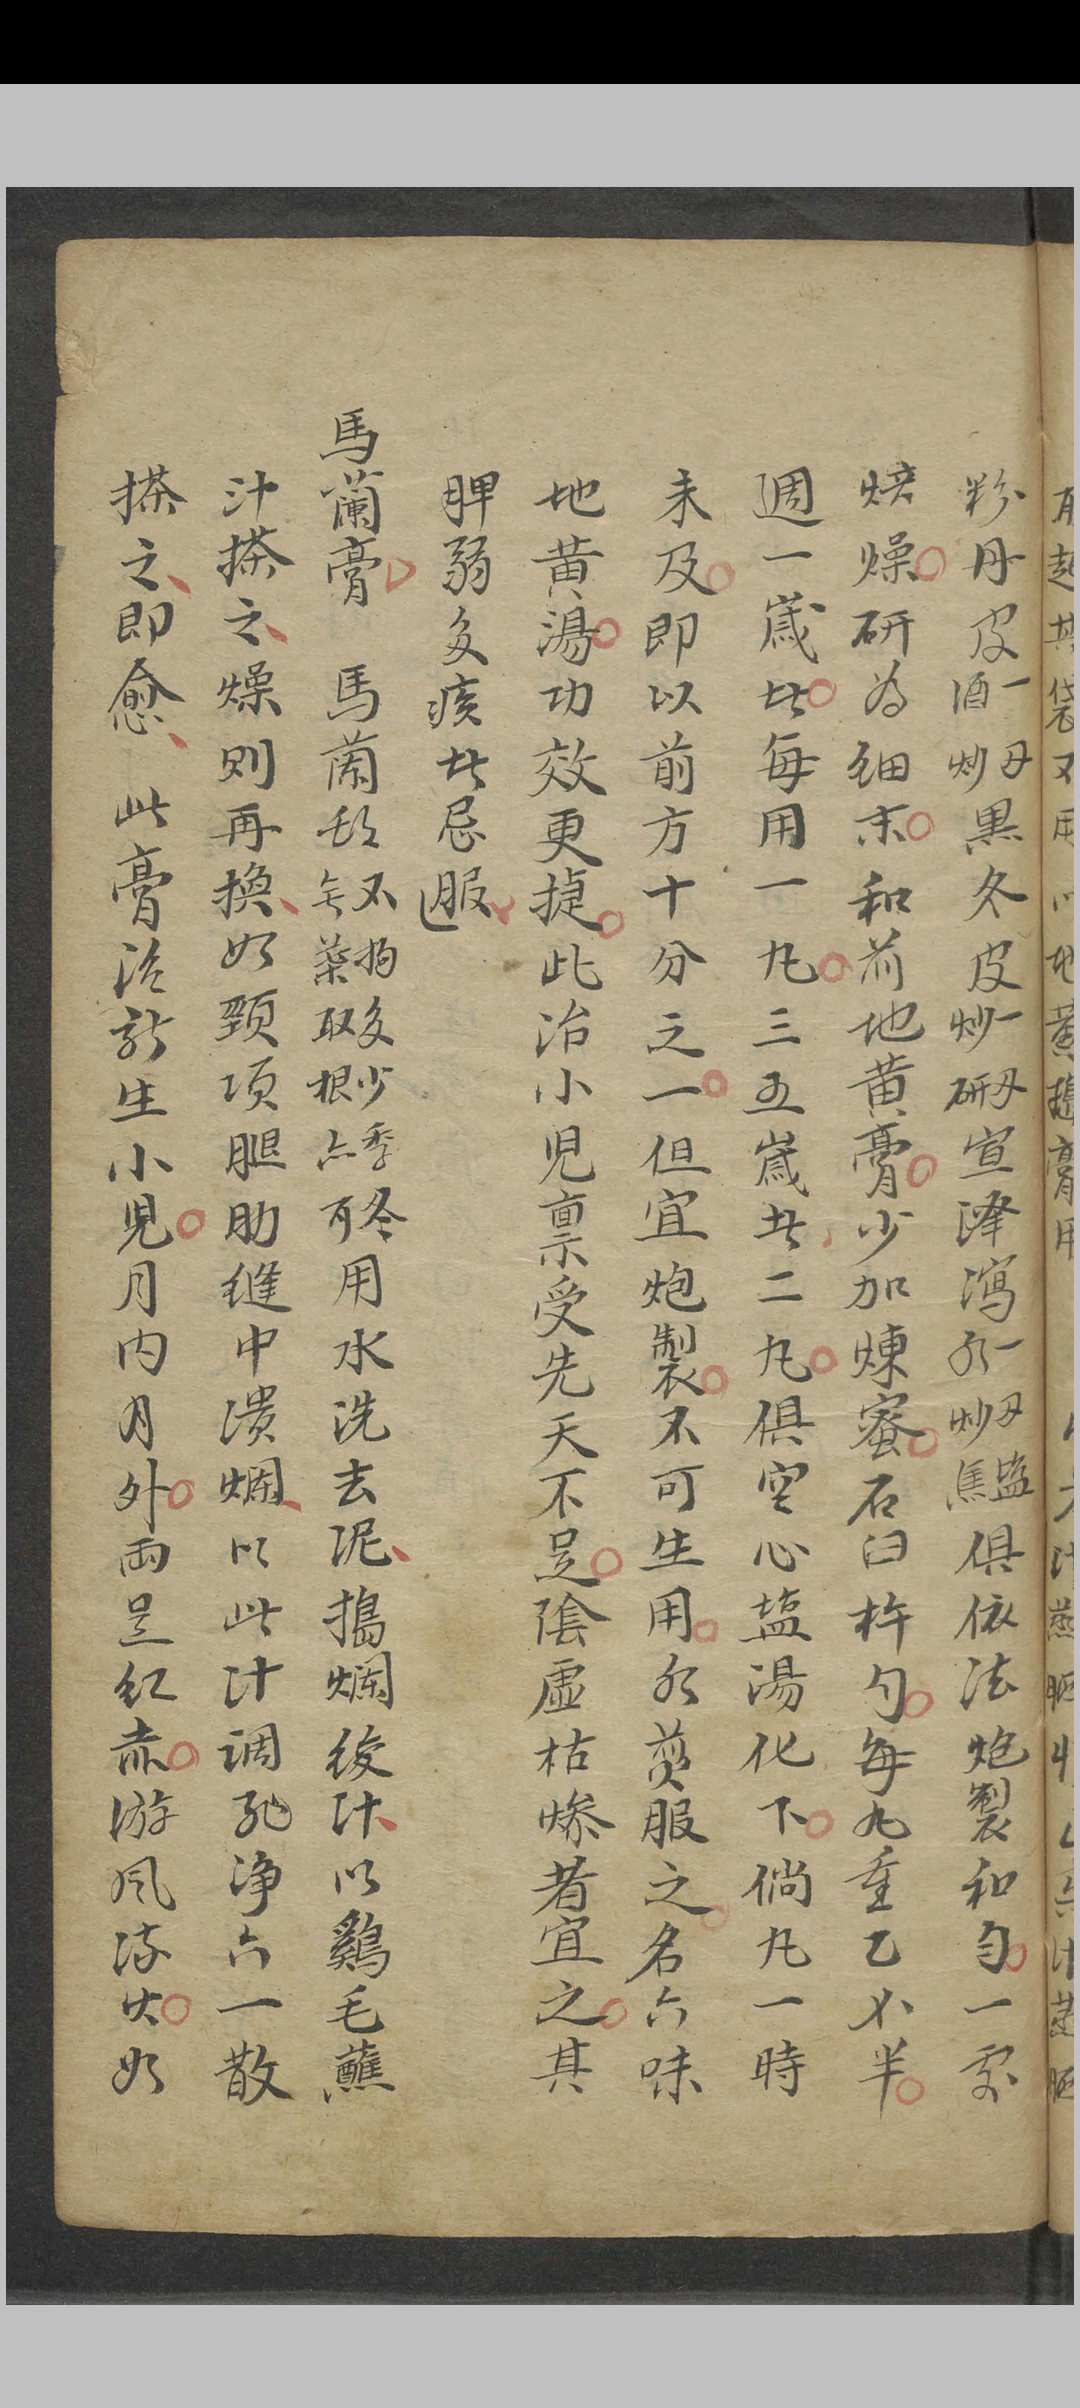 粉丹皮一丑酒炒黑冬皮一丑炒研宣澤瀉一丑鹽水炒焦俱依法炮製和勻一處
焙燥研為細末和前地黄膏少加煉蜜石臼杵勻每丸重乙錢半
週一歲者每用一丸三五歲者二丸俱空心塩湯化下倘丸一時
未及即以前方十分之一但宜炮製不可生用水煎服之名六味
地黄湯功效更捷此治小兒禀受先天不足陰虛枯燥者宜之其
脾弱多痰者忌服
馬蘭膏 馬蘭頭不拘多少季冬無葉取根亦可用水洗去泥搗爛絞汁以鷄毛蘸
汁搽之燥則再換如頸項腿肋縫中潰爛以此汁調飛净六一散
搽之即愈 此膏治新生小兒月内月外兩足紅赤游風流火如